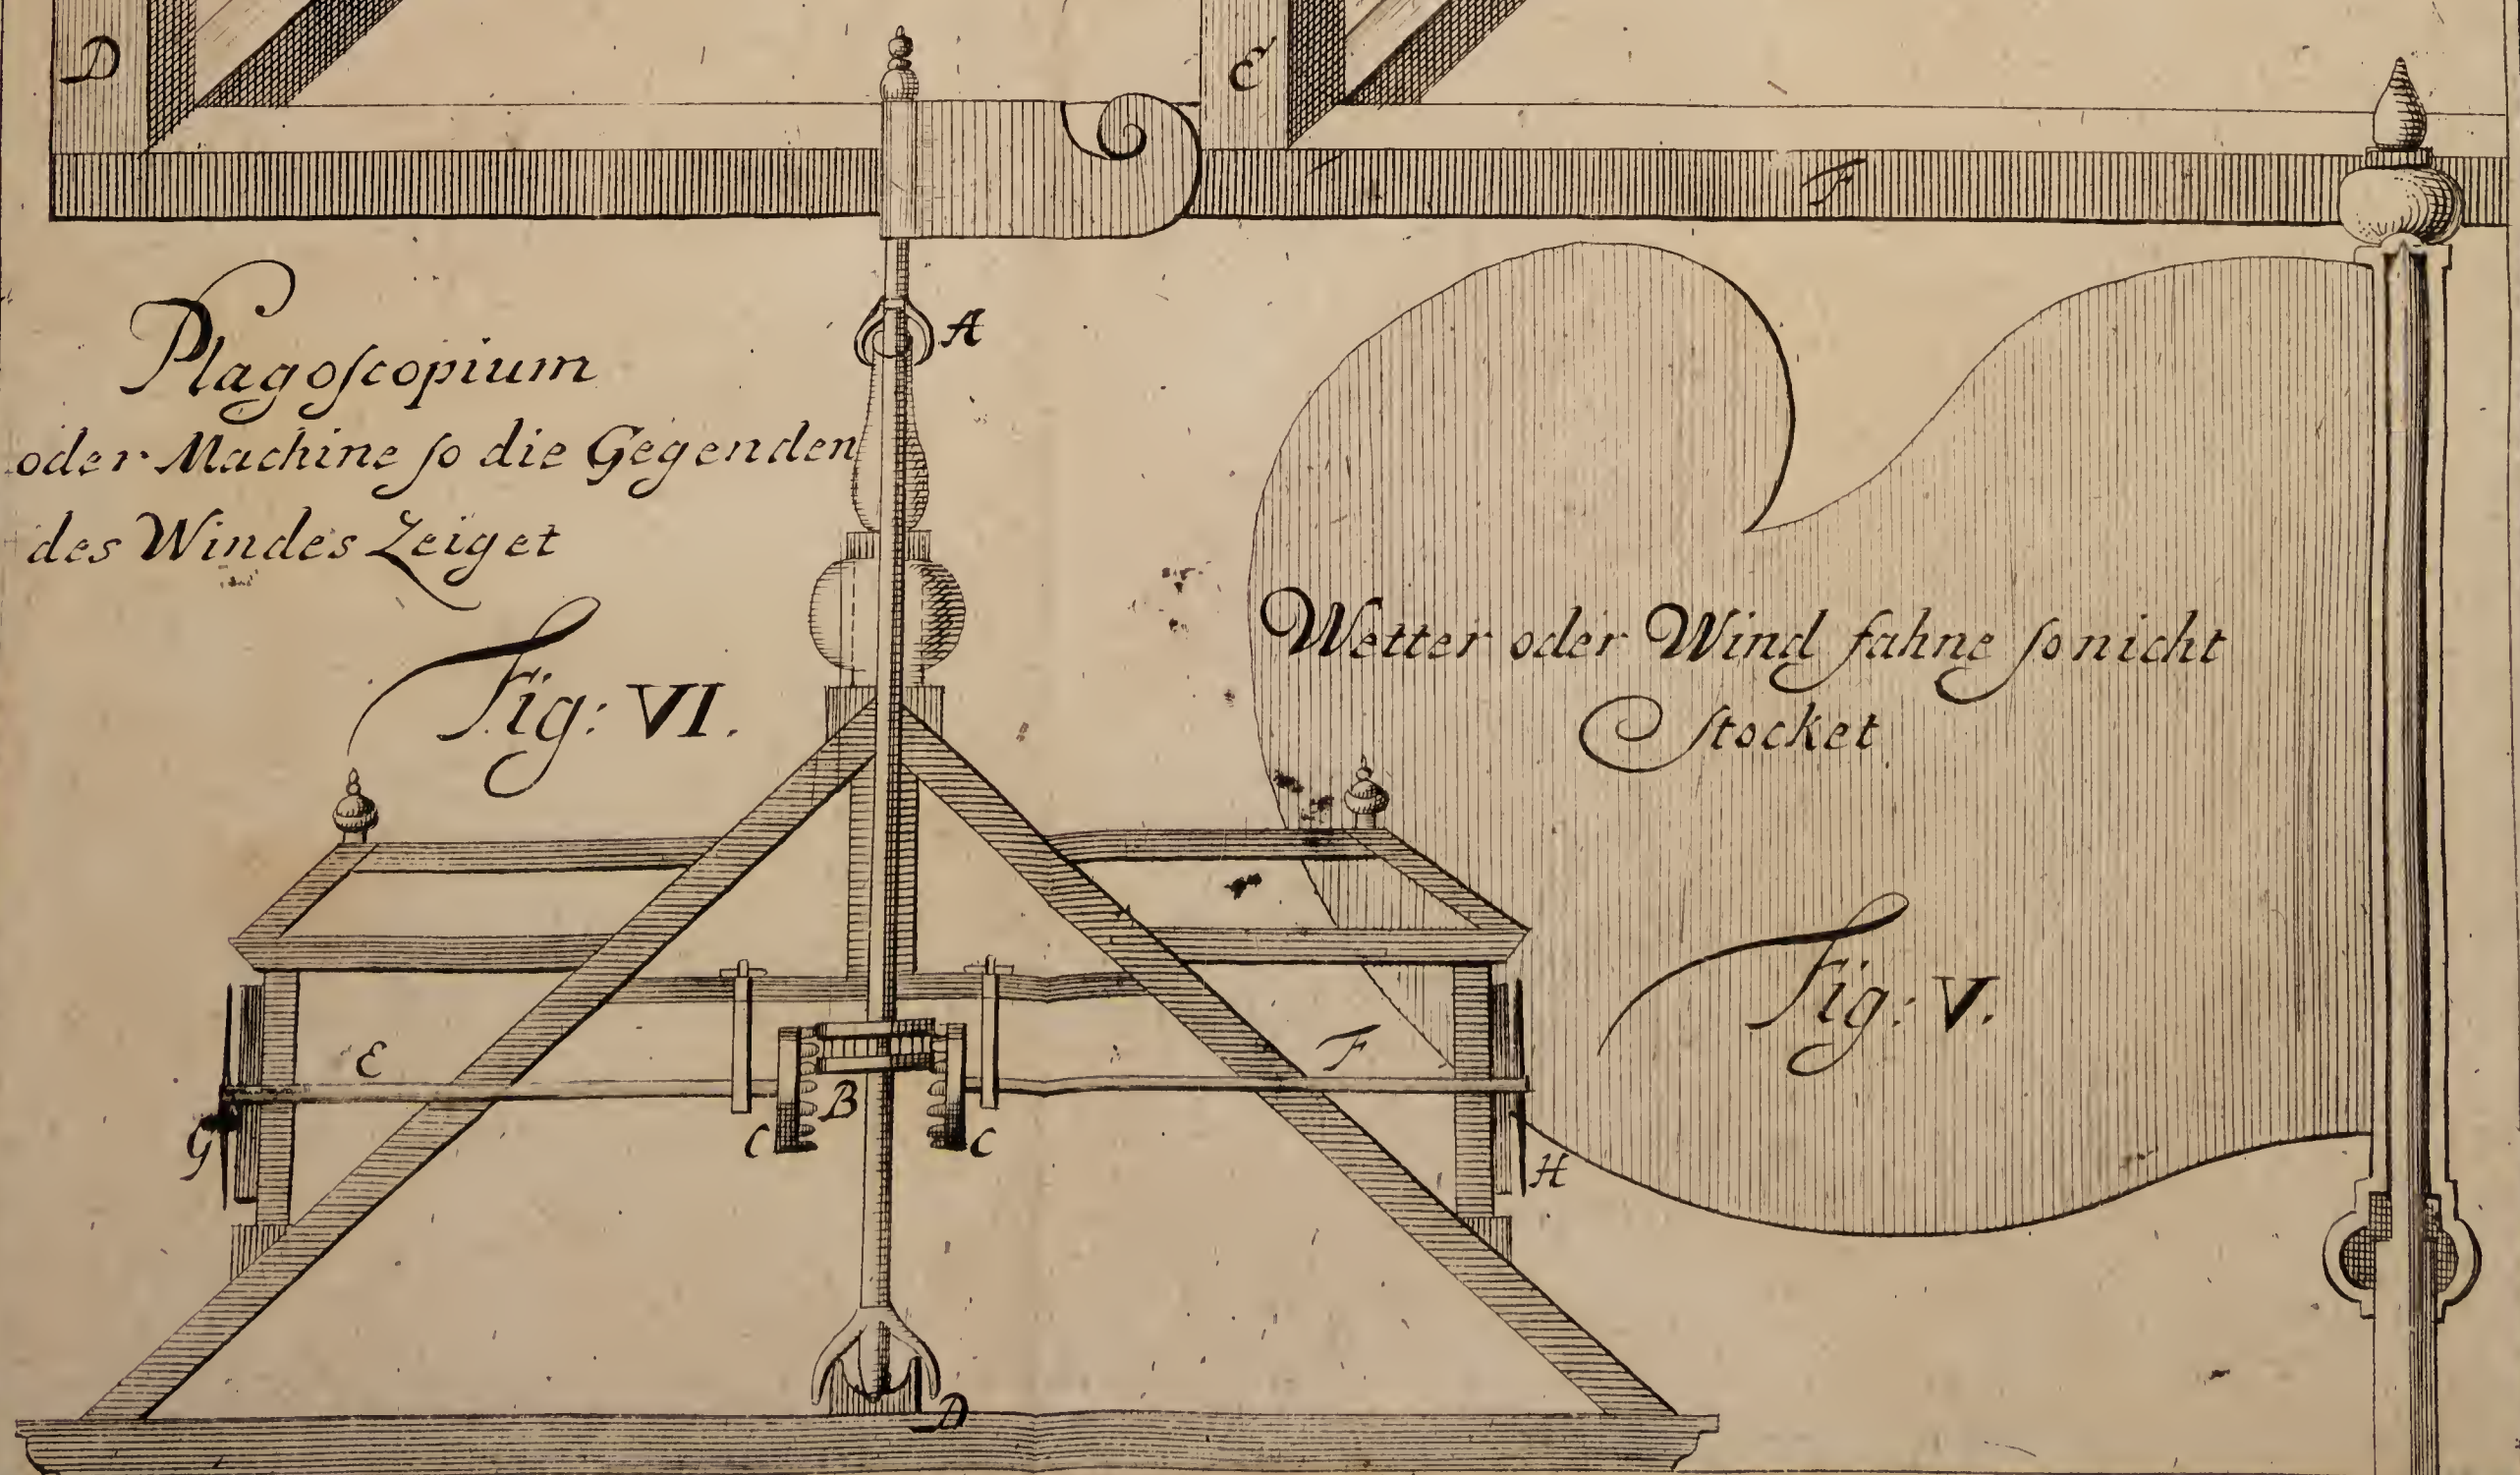 D
E
F
A
Plagoſcopium
oder Machine ſo die Gegenden
des Windes Zeiget
Fig: VI.
Wetter oder Wind fahne ſo nicht
ſtocket
Fig: V.
E
F
B
C
C
G
H
D